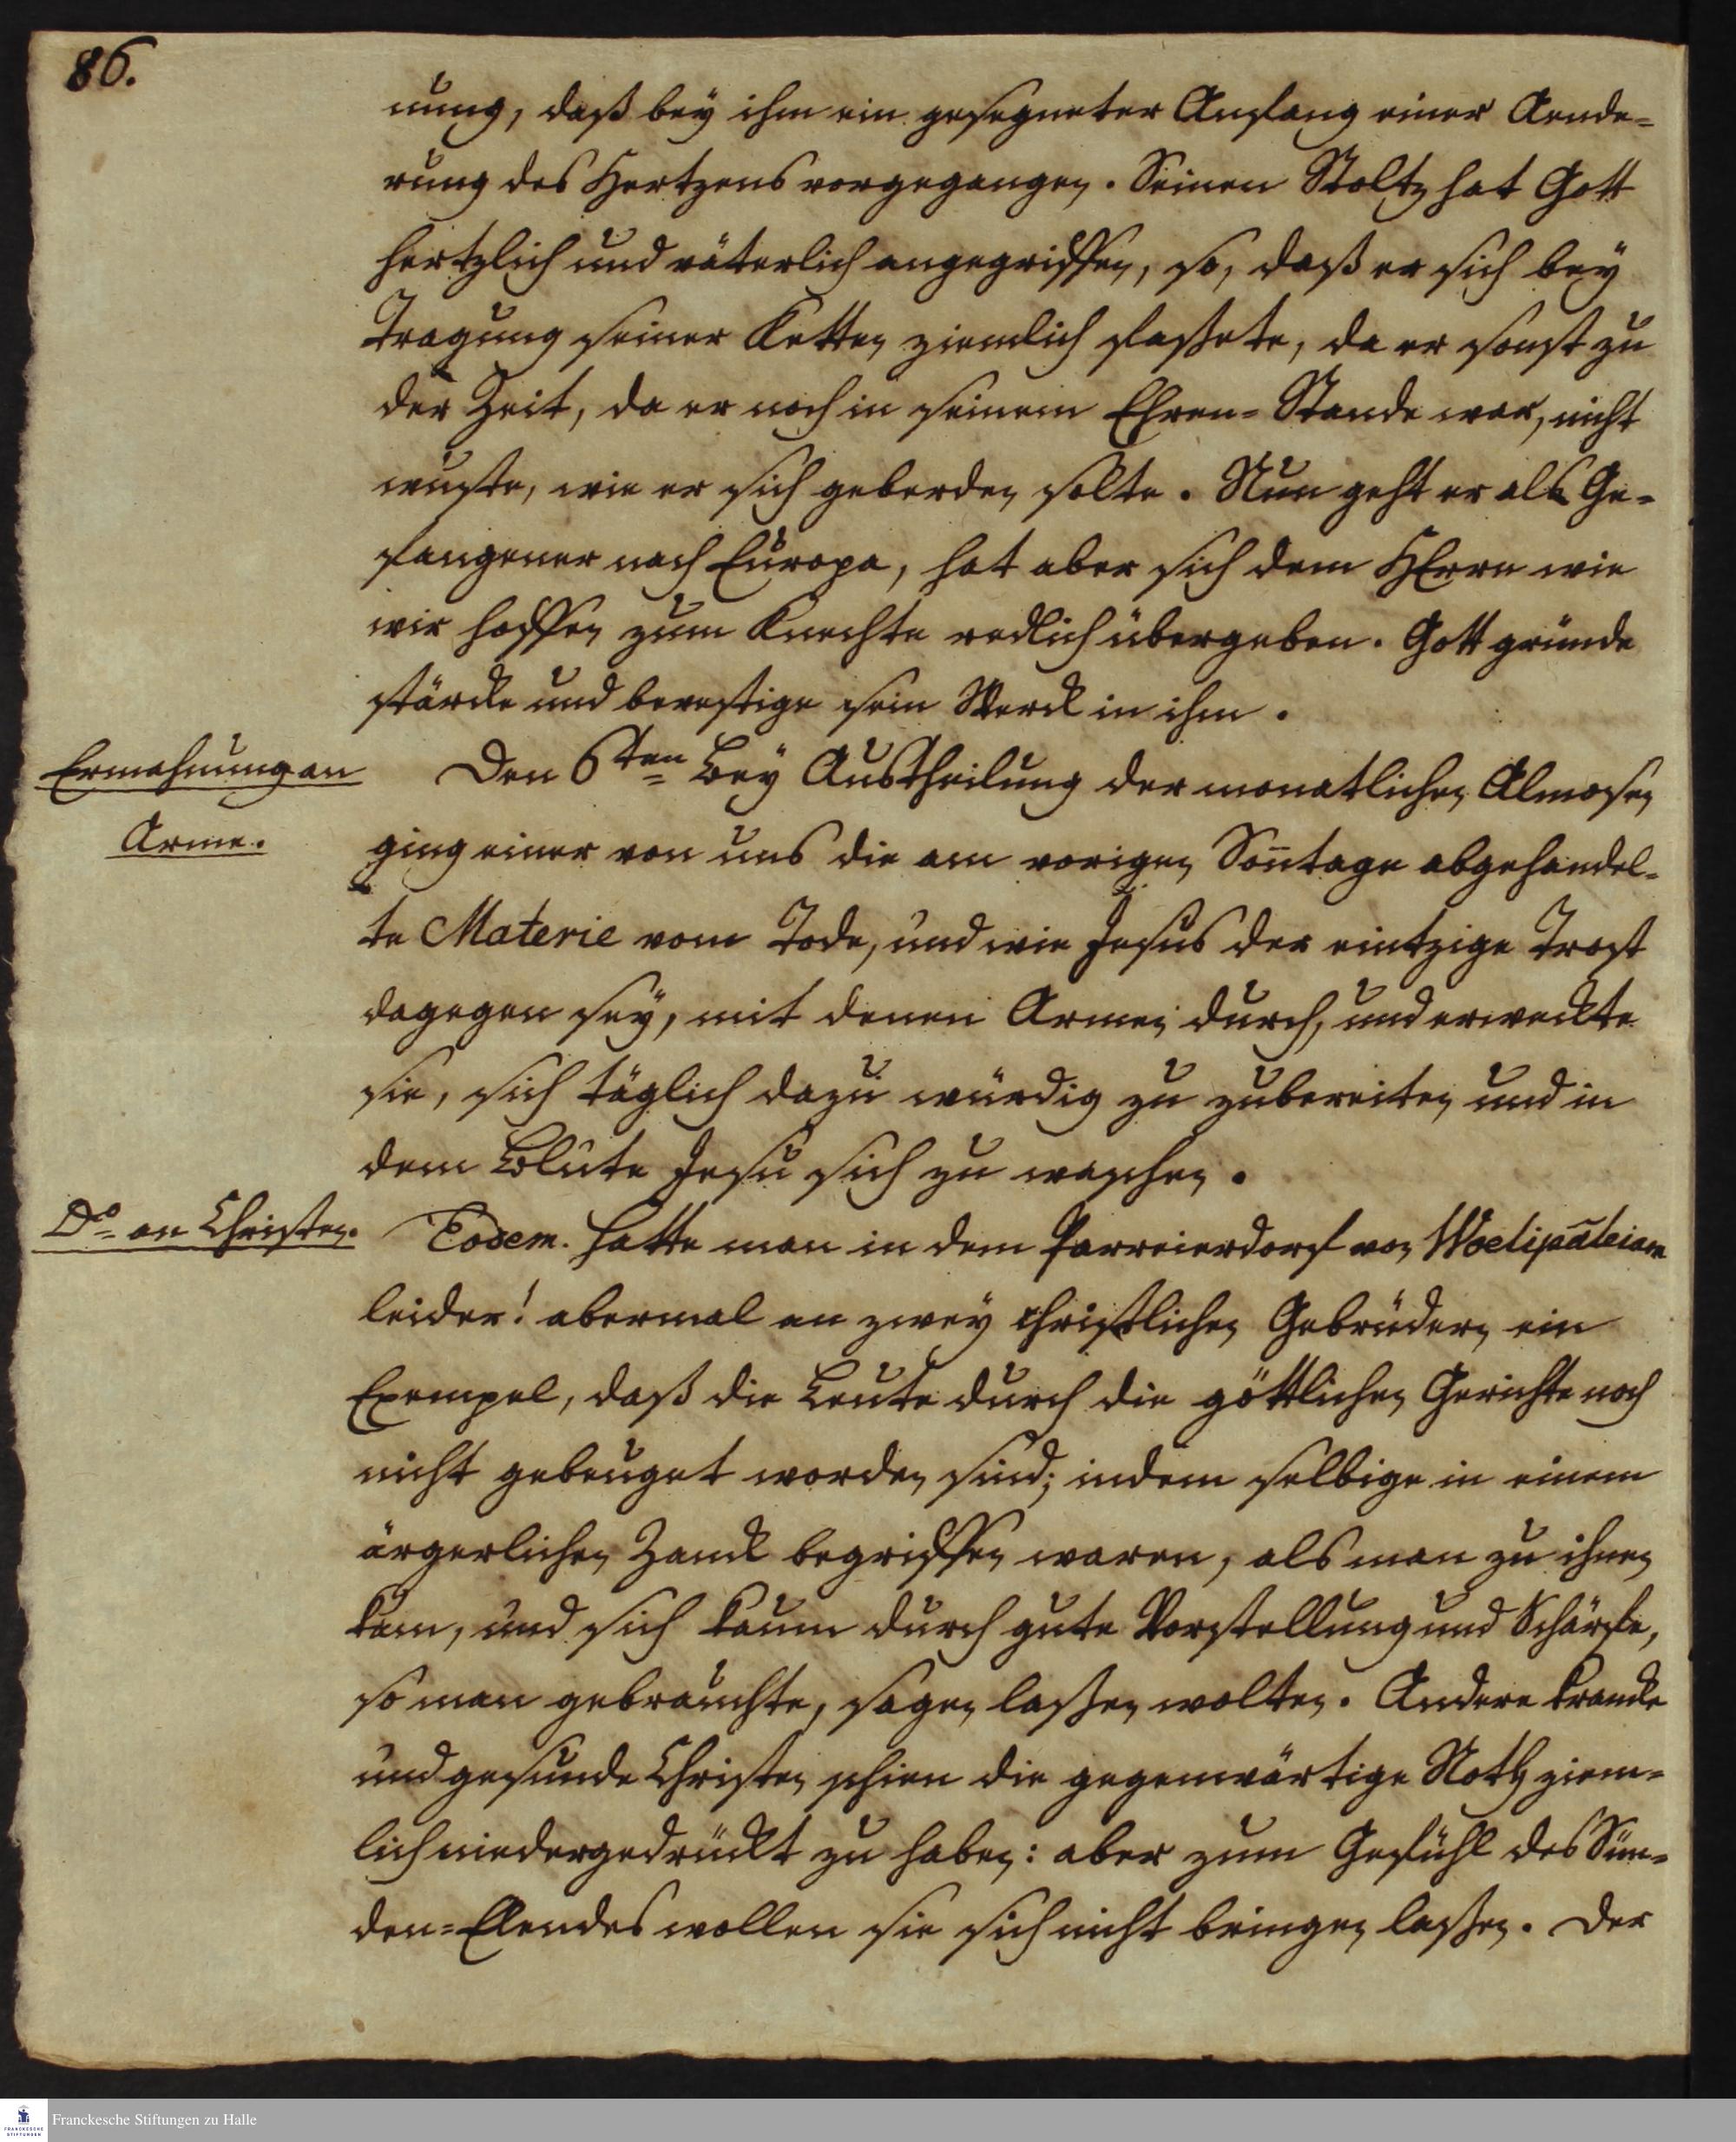 86.
nung, daß bey ihm ein gesegneter Anfang einer Aende-
rung des Hertzens vorgegangen. Seinen Stoltz hat Gott
hertzlich und väterlich angegriffen, so, daß er sich bey
Tragung seiner Ketten ziemlich faßete, da er sonst zu
der Zeit, da er noch in seinem Ehren-Stande war, nicht
wuste, wie er sich geberden solte. Nun geht er als Ge-
fangener nach Europa, hat aber sich dem HErrn wie
wir hoffen zum Knechte redlich übergeben. Gott gründe
stärcke und bevestige sein Werck in ihm.
Ermahnung an
Arme.
Den 6ten Bey Austheilung der monatlichen Almosen
ging einer von uns die am vorigen Soñtage abgehandel-
te Materie vom Tode, und wie Jesus der eintzige Trost
dagegen sey, mit denen Armen durch, und erweckte
sie, sich täglich dazu würdig zu zubereiten und in
dem Blute Jesu sich zu waschen.
Do an Christen.
Eodem. Hatte man in dem Parreierdorf von Woelipāleiam
leider! abermal an zwey christlichen Gebrüdern ein
Exempel, daß die Leute durch die göttlichen Gerichte noch
nicht gebeuget worden sind; indem selbige in einem
ärgerlichen Zanck begriffen waren, als man zu ihnen
kam, und sich kaum durch gute Vorstellung und Schärfe,
so man gebrauchte, sagen laßen wolten. Andere krancke
und gesunde Christen schien die gegenwärtige Noth ziem-
lich niedergedrückt zu haben: aber zum Gefühl des Sün-
den-Elendes wollen sie sich nicht bringen laßen. Der
Franckesche Stiftungen zu Halle
FRANCKESCHE
STIFTUNGEN